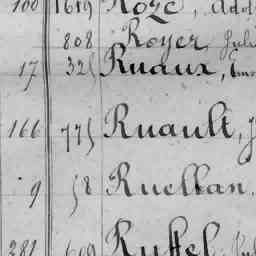 100 1619 Roze, Adol
808 Royer, Juli
17 325 Ruaux,
166 775 Ruault, J
9 58 Ruellan,
281 609 Ruffel, Jul